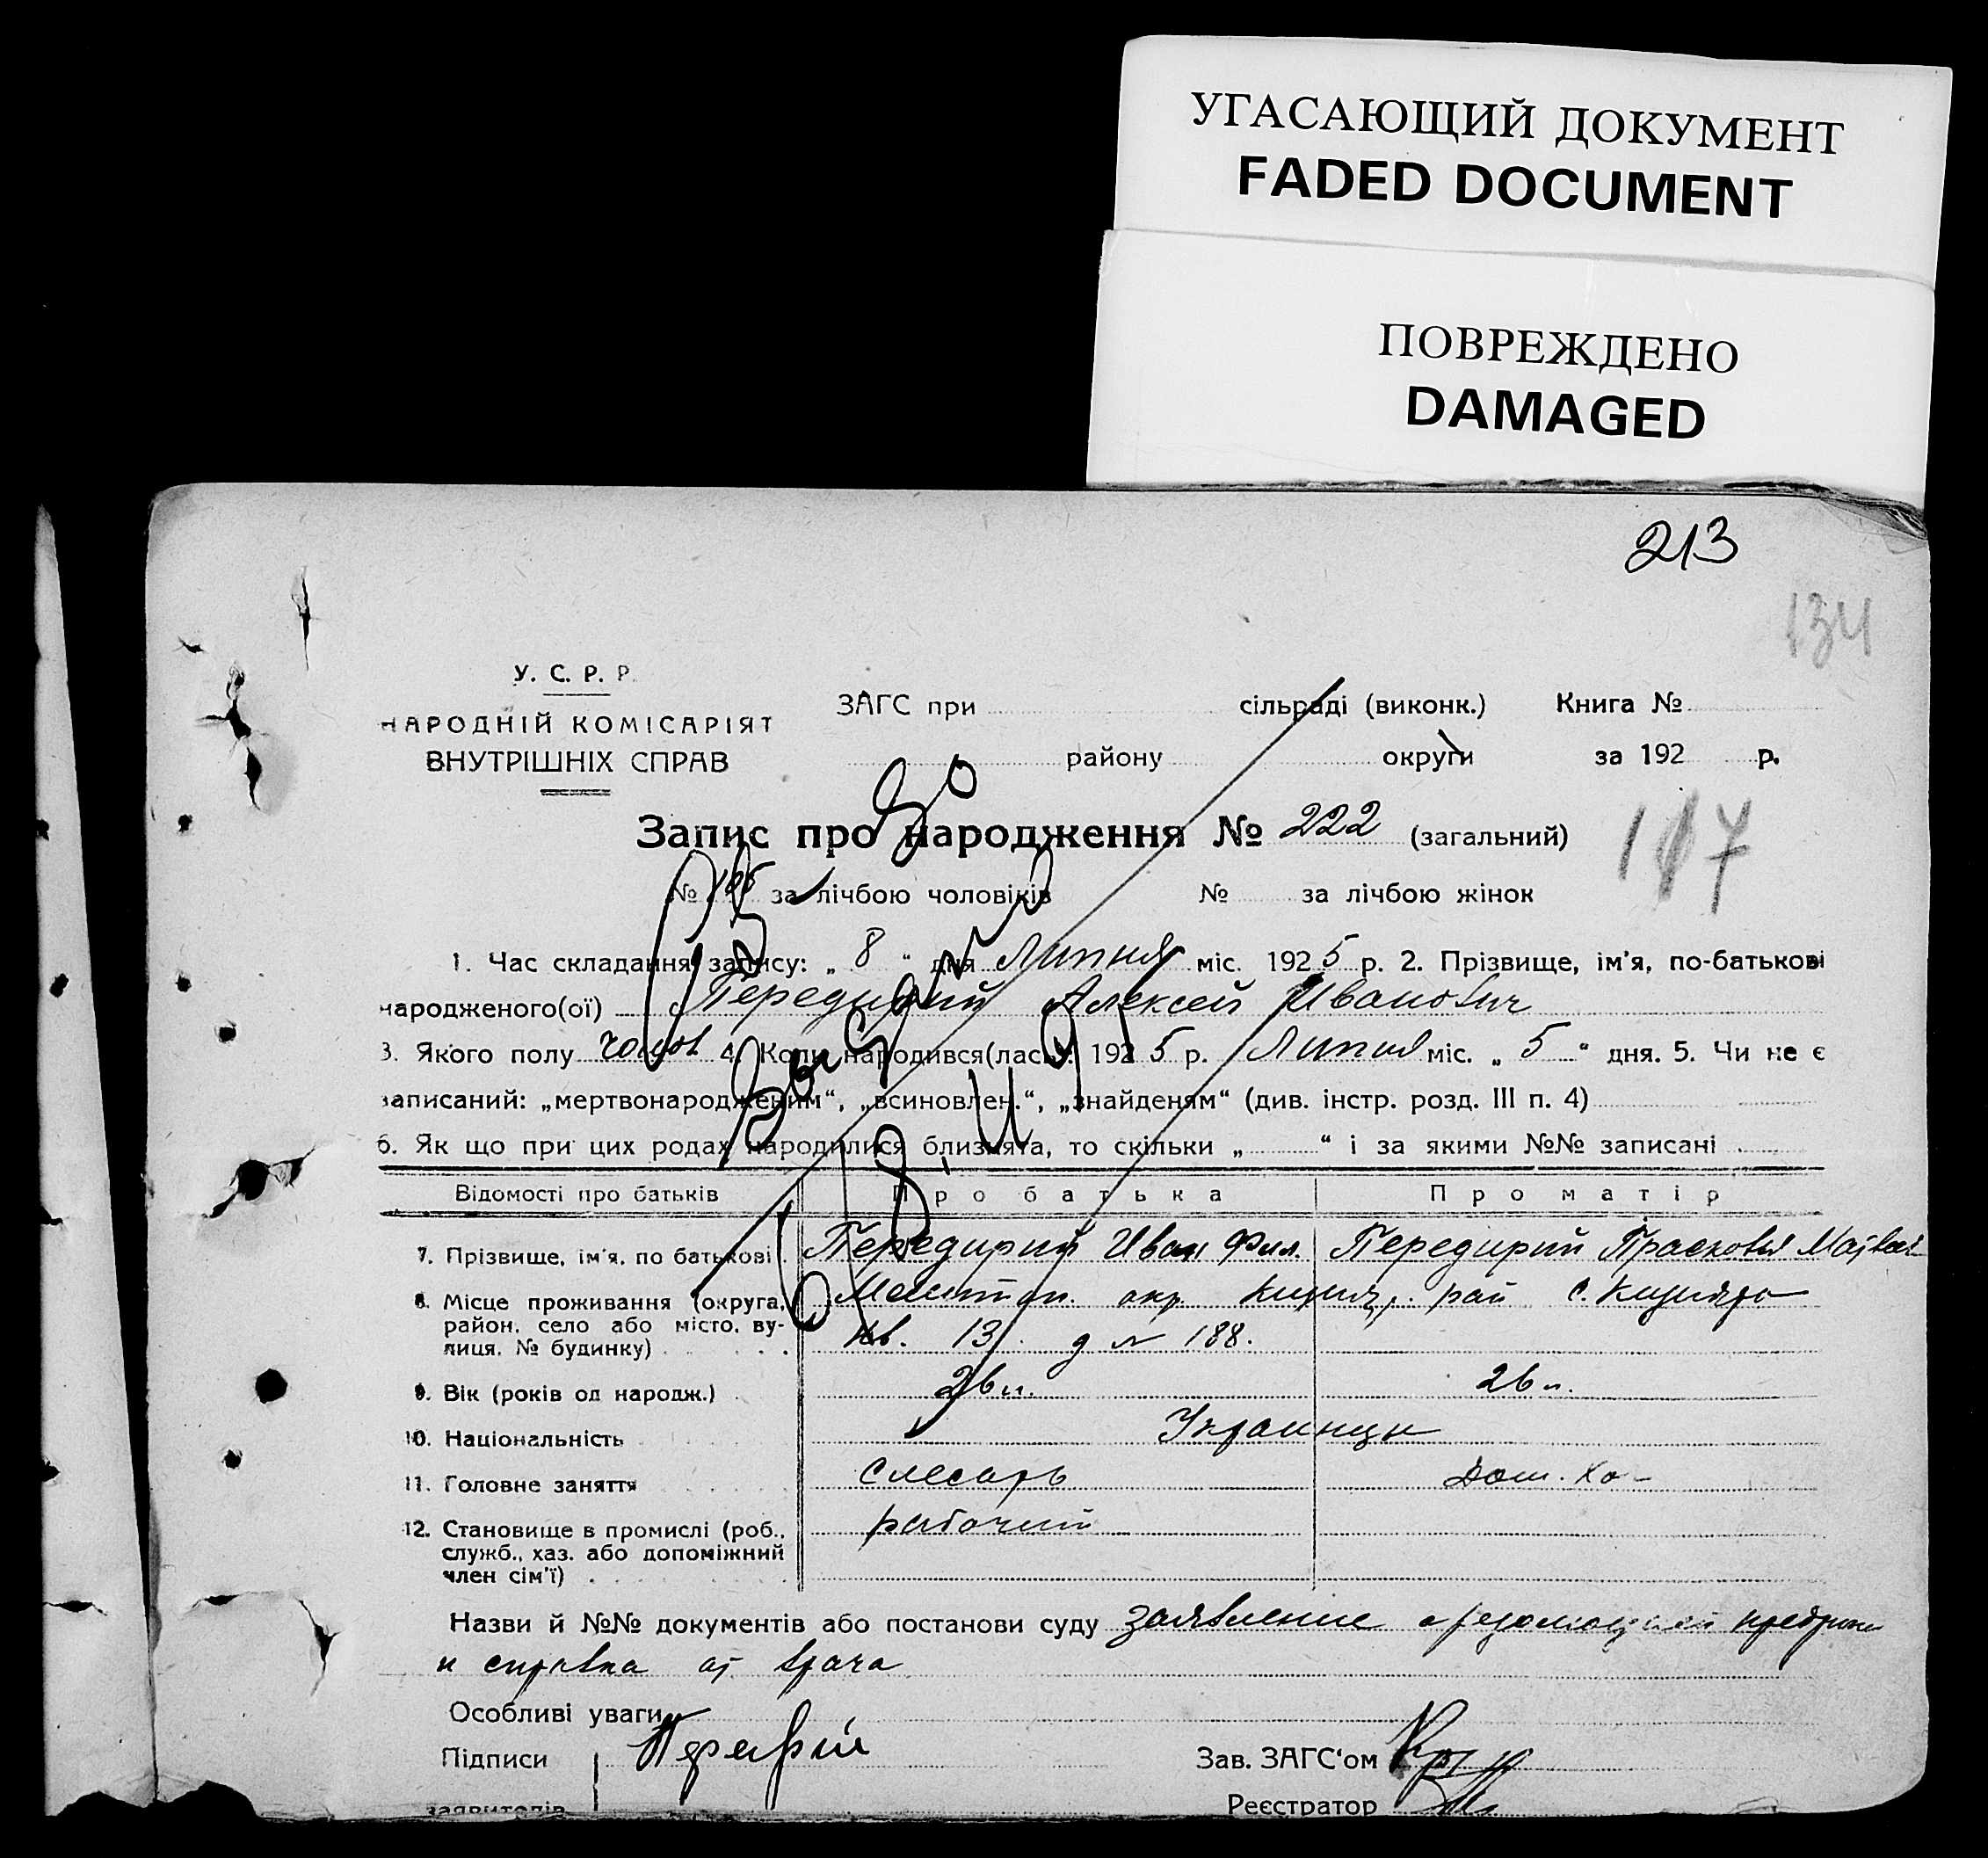 УГАСАЮЩИЙ ДОКУМЕНТ
FADED DOCUMENT
ПОВРЕЖДЕНО
DAMAGED
213
134
У. С. Р. Р.
НАРОДНІЙ КОМІСАРІЯТ
ВНУТРІШНІХ СПРАВ
ЗАГС при сільраді (виконк.) Книга №
району округи за 192 р.
Запис про народження № 222 (загальний)
117
№ за лічбою чоловіків № за лічбою жінок
1. Час складання запису: „ 8 “ дня Липня міс. 1925 р. 2. Прізвище, ім'я, по-батькові
народженого(ої) Передирий Алексей Иванович
3. Якого полу чолов 4. Коли народився(лась): 1925 р. Липня міс. „ 5 “ дня. 5. Чи не є
записаний: „мертвонародженим“, „всиновлен.“, „знайденям“ (див. інстр. розд. III п. 4)
6. Як що при цих родах народилися близнята, то скільки „ “ і за якими №№ записані
Відомості про батьків Про батька Про матір
7. Прізвище, ім'я, по батькові Передирий Иван Фил. Передирий Прасковья
8. Місце проживання (округа, район, село або місто, вулиця, № будинку) Мелитоп. окр. рай с.
кв. 13 д № 188.
9. Вік (років од народж.) 26 л. 26 л.
10. Національність Украинцы
11. Головне заняття слесарь Дом. хо-
12. Становище в промислі (роб., служб., хаз. або допоміжний член сім'ї) рабочий
Назви й №№ документів або постанови суду заявление с резолюцией
и справка от врача
Особливі уваги
Підписи Зав. ЗАГС'ом
заявителів Реєстратор